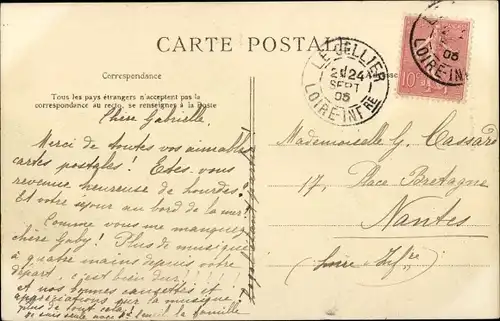 CARTE POSTALE
Correspondance
Tous les pays étrangers n'acceptent pas la
correspondance au recto, se renseignes à la Poste
LE CELLIER
24
SEPT
05
LOIRE-INFRE
10
05
LOIRE-IN
Chère Gabrielle,
Merci de toutes vos aimables
cartes postales! Etes-vous
revenue heureuse de Lourdes!
Et votre séjour au bord de la mer!
Comme vous me manquez
chère Gaby! Plus de musique
à quatre mains depuis votre
départ, c'est bien dur!!!!!
et nos bonnes causettes et
appréciations sur la musique!
plus de tout cela!
suis seule avec la famille
Mademoiselle G. Cassard
17, Place Bretagne
Nantes
(Loire-Infre)